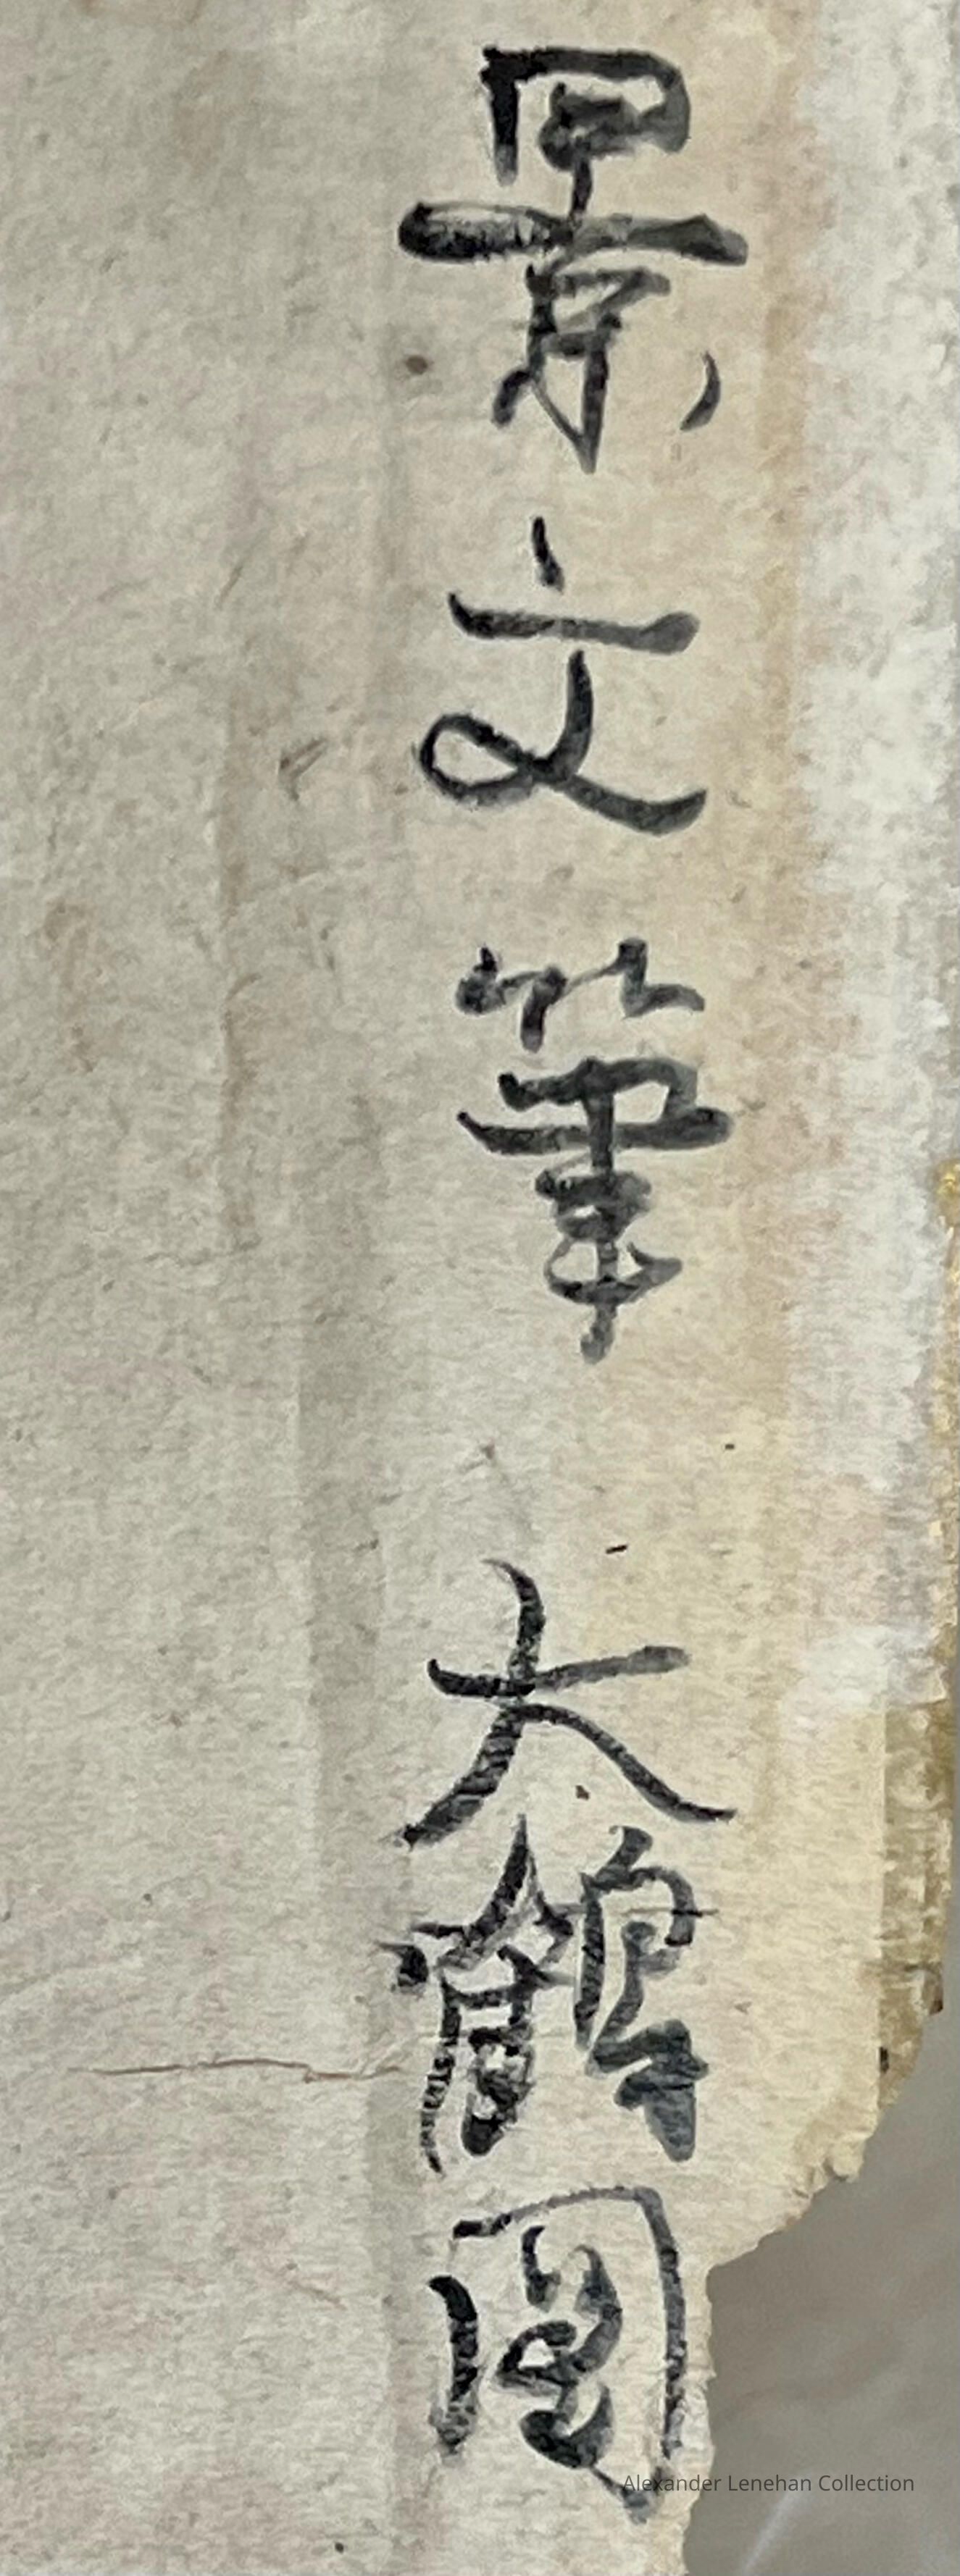 景文筆 大 圖
Alexander Lenehan Collection